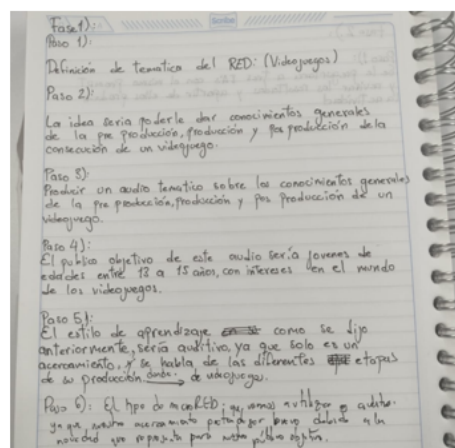 Scribe
Fase 1):
Paso 1):
Definición de tematica del RED: (Videojuegos)
Paso 2):
La idea seria poderle dar conocimientos generales
de la pre producción, producción y pos producción de la
consecución de un videojuego.
Paso 3):
Producir un audio tematico sobre los conocimientos generales
de la pre producción, producción y pos Producción de un
videojuego.
Paso 4):
El publico objetivo de este audio sería jovenes de
edades entre 13 a 15 años, con intereses en el mundo
de los videojuegos.
Paso 5):
El estilo de aprendizaje como se dijo
anteriormente, sería auditivo, ya que solo es un
acercamiento, y se habla de las diferentes etapas
de su producción de videojuegos.
Paso 6): El tipo de microRED, que vamos a utilizar es
ya que, nuestro acercamiento por breve debido a la
novedad que para publico objetivo.